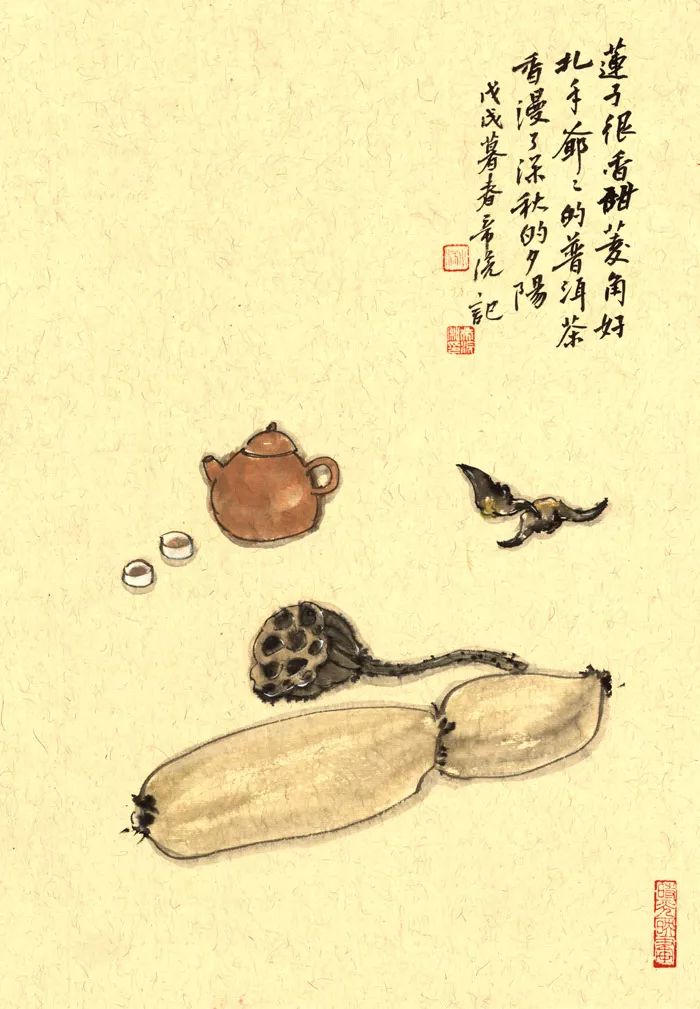 蓮子很香甜菱角好
扎手爺〻的普洱茶
香漫了深秋的夕陽
戊戌暮春 記